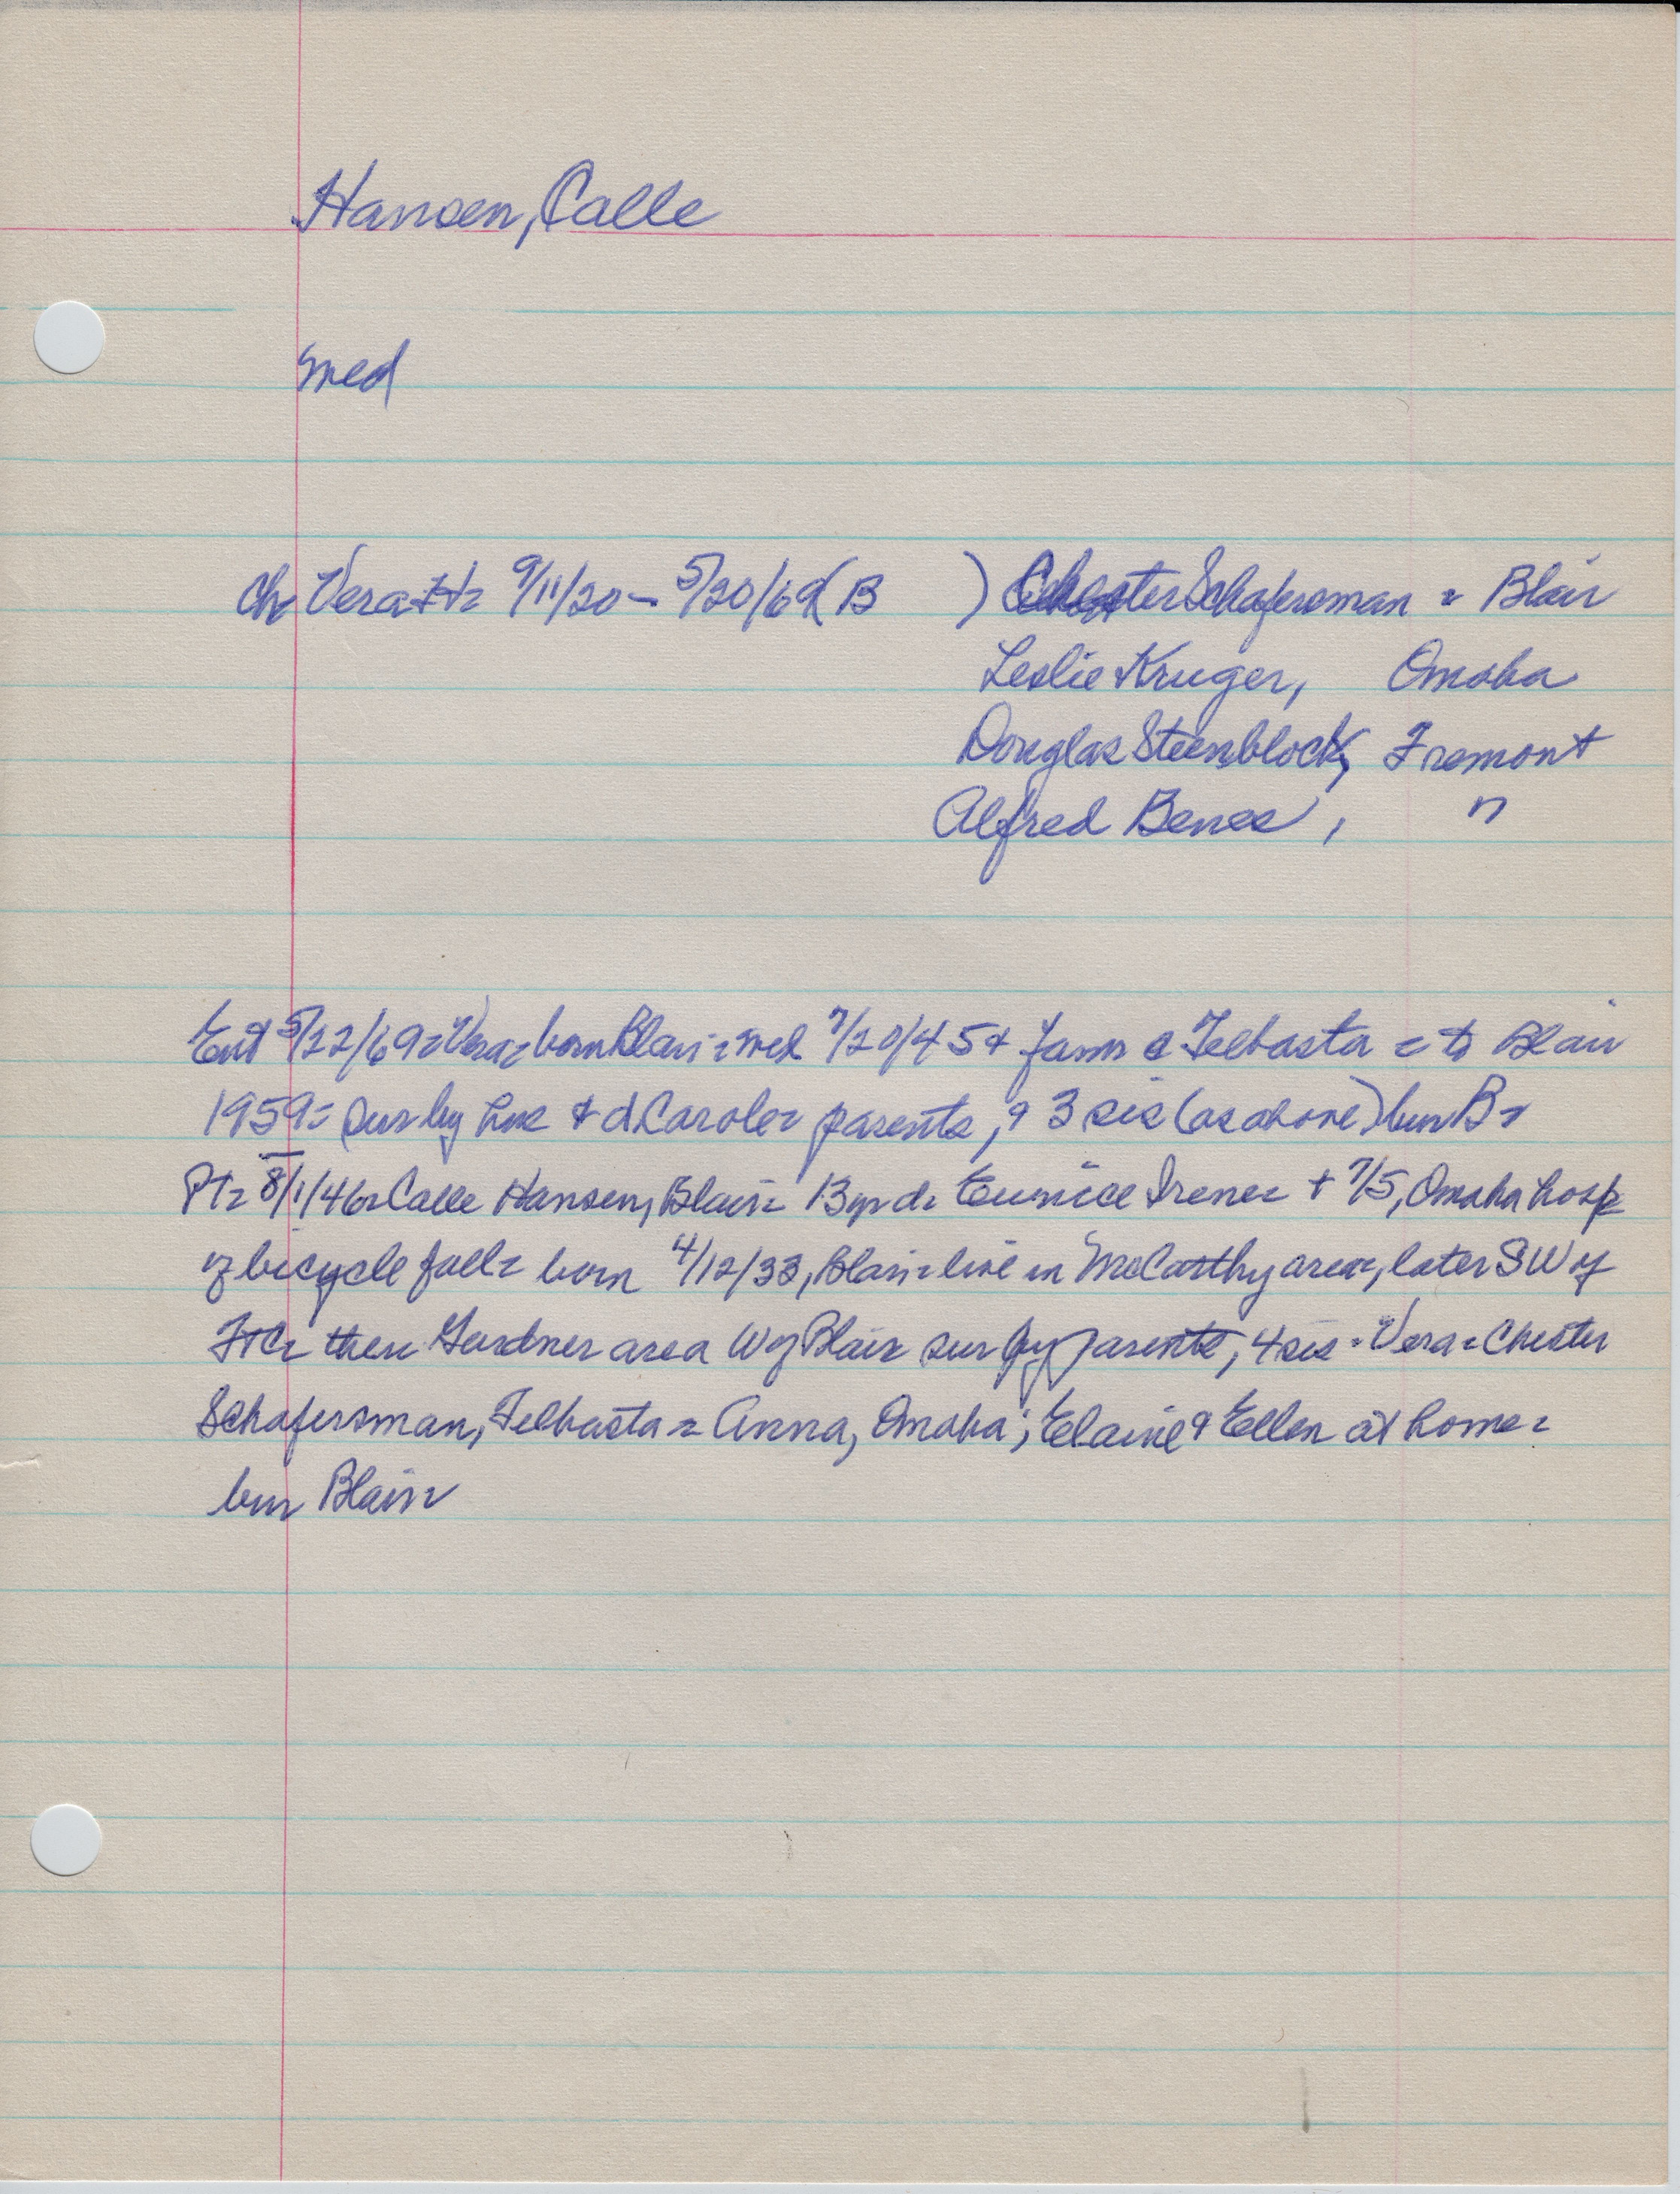 Hansen, Calle
med
Ch Vera ++= 9/11/20 – 5/20/69 (B ) Chester Schafersman = Blair
Leslie Kruger, Omaha
Douglas Steenblock, Fremont
Alfred Benes, "
Ent 5/22/69= Vera= born Blair= med 7/20/45 & farm @ Telbasta = to Blair
1959= Sur by hus & d Carole= parents, & 3 sis (as above) bur B=
PT= 8/1/46= Calle Hansen, Blair= 13 yr d= Eunice Irene= + 7/5, Omaha hosp
of bicycle fall= born 4/12/33, Blair= live in McCarthy area, later SW of
then Gardner area W of Blair sur by parents, 4 sis = Vera= Chester
Schafersman, Telbasta = Anna, Omaha; Elaine & Ellen at home=
bur Blair=